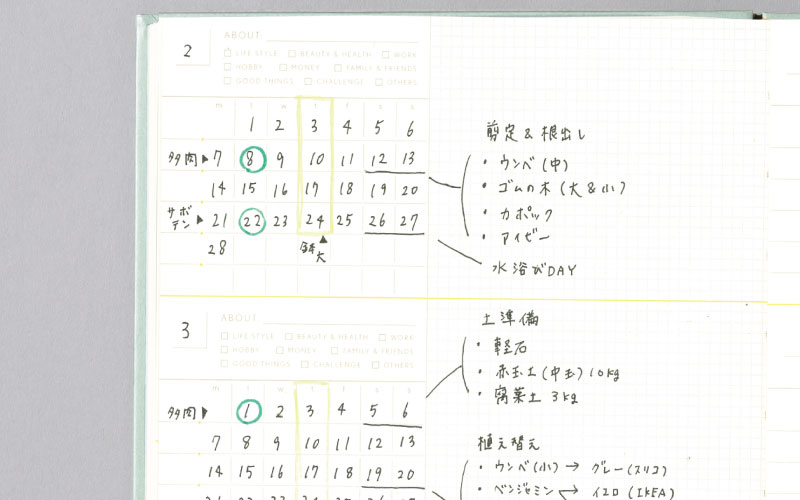 2
ABOUT:
LIFE STYLE BEAUTY & HEALTH WORK
HOBBY MONEY FAMILY & FRIENDS
GOOD THINGS CHALLENGE OTHERS
m t w t f s s
1 2 3 4 5 6
多肉 7 8 9 10 11 12 13
14 15 16 17 18 19 20
サボテン 21 22 23 24 25 26 27
28
大
剪定&根出し
・ウンベ(中)
・ゴムの木(大&小)
・カポック
・アイビー
水浴びDAY
3
ABOUT:
LIFE STYLE BEAUTY & HEALTH WORK
HOBBY MONEY FAMILY & FRIENDS
GOOD THINGS CHALLENGE OTHERS
m t w t f s s
多肉 1 2 3 4 5 6
7 8 9 10 11 12 13
14 15 16 17 18 19 20
土準備
・軽石
・赤玉土(中玉)10kg
・腐葉土 3kg
植え替え
・ウンベ(小)→グレー(スリコ)
・ベンジャミン→イエロ(IKEA)